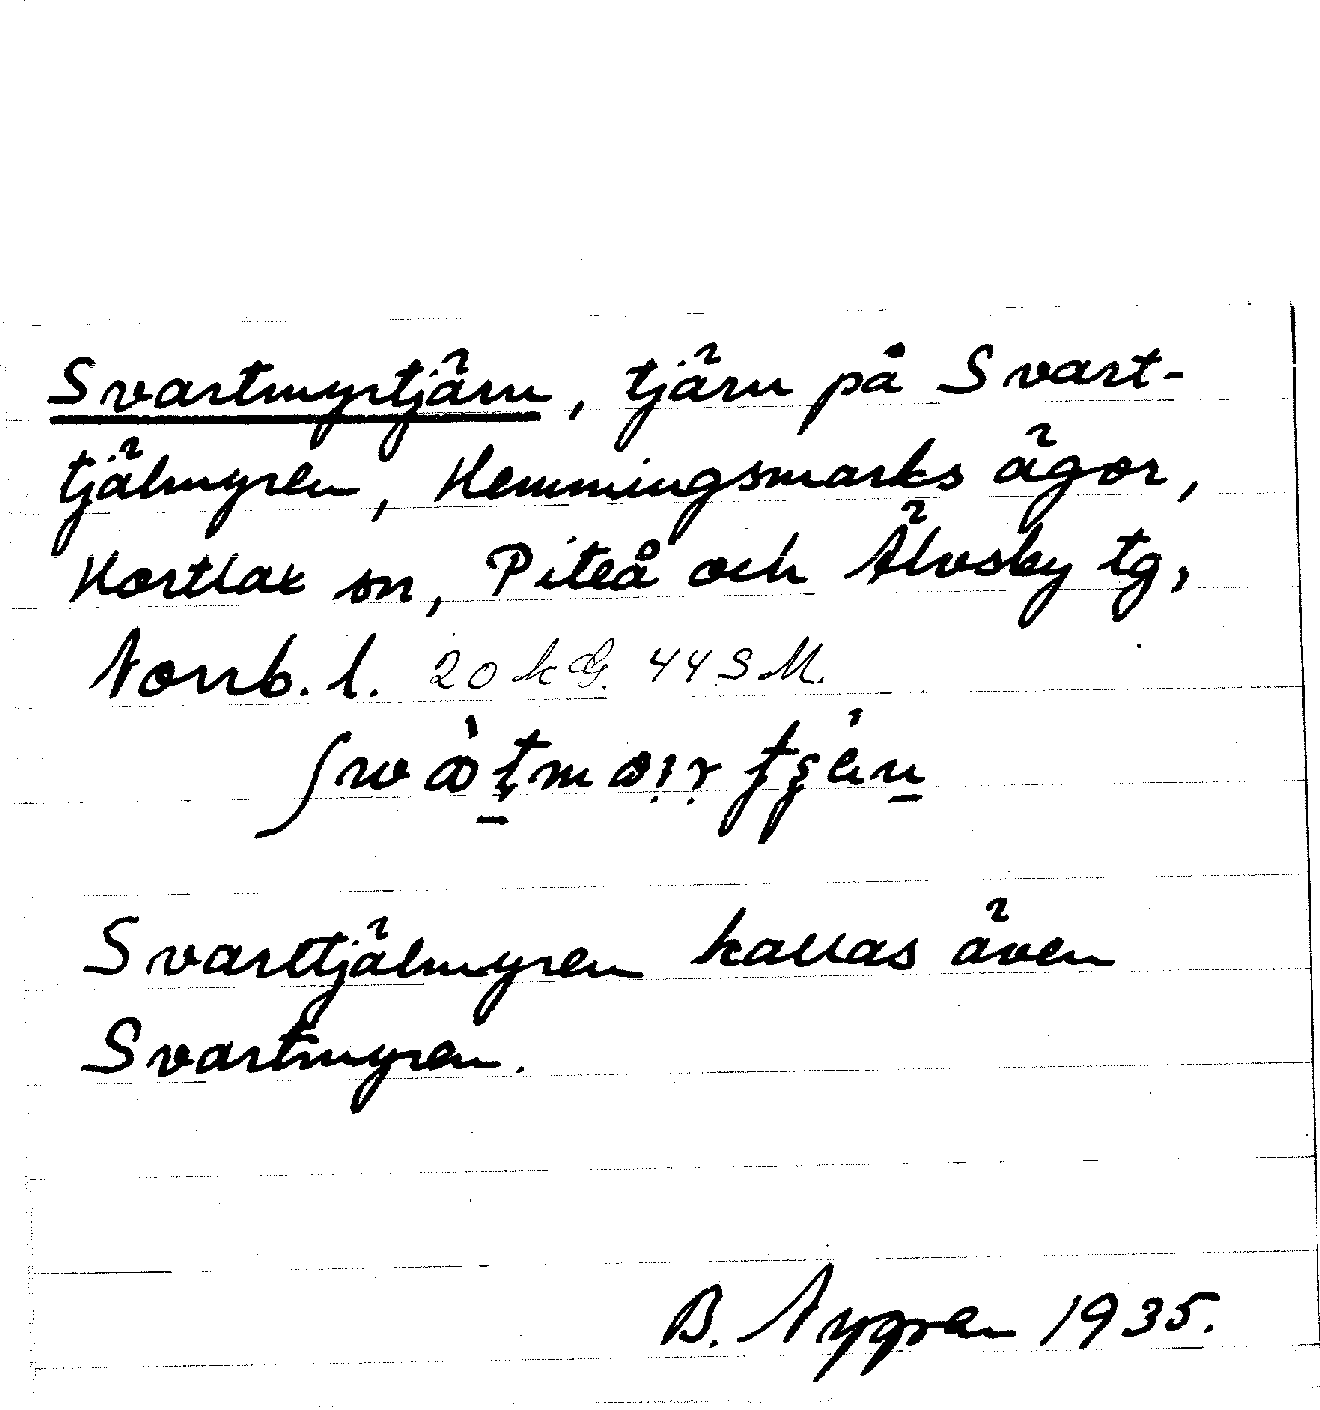 Svartmyrtjärn, tjärn på Svart-
tjälmyren, Hemmingsmarks ägor,
Hortlax sn, Piteå och Älvsby tg,
Norrb. l. 20 k G. 44 S M.
Svarttjälmyren kallas även
Svartmyren.
B. Nygren 1935.